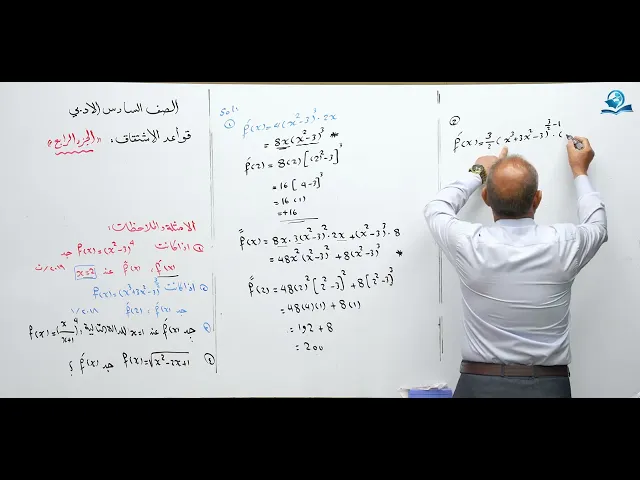 الصف السادس الادبي
قواعد الاشتقاق: "الجزء الرابع"
الامثلة والملاحظات:
① اذا كانت f(x)=(x²-3)⁴ جد
f̋(x) , f́(x) عند x=2
② اذا كانت f(x)=(x³+3x²-3)^(3/2)
جد f́(x) , f́(2)
جد f́(x) عند x=1 للدالة التالية: f(x)=(x/(x+1))⁴
f(x)=√(x²-2x+1) جد f́(x) ؟
Sol:
① f́(x)=4(x²-3)³·2x
= 8x(x²-3)³ *
f́(2)=8(2)[(2)²-3]³
=16[4-3]³
=16(1)
=+16
f̋(x)=8x·3(x²-3)²·2x+(x²-3)³·8
=48x²(x²-3)²+8(x²-3)³ *
f̋(2)=48(2)²[2²-3]²+8[2²-3]³
=48(4)(1)+8(1)
=192+8
=200
②
f́(x)=3/2(x³+3x²-3)^(3/2-1)·(